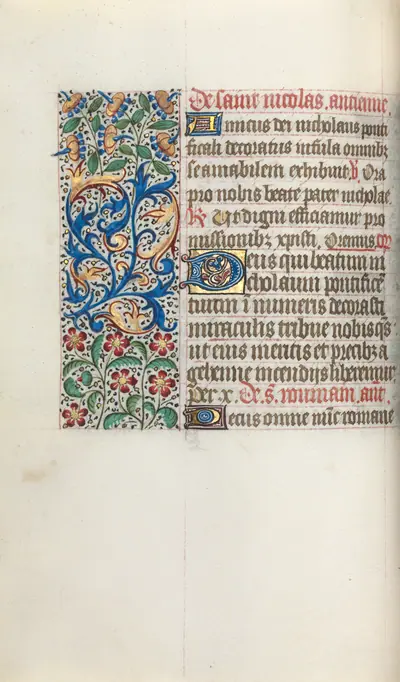 De saint nicolas. antienne.
Amicus dei nicholaus ponti
ficali decoratus infula omnibz
se amabilem exhibuit. V Ora
pro nobis beate pater nicholae.
R Ut digni efficiamur pro
missionibz xpisti. Oremus. or
Deus qui beatum ni
cholaum pontificem
tuum i numeris decorasti
miraculis tribue nobis qs
ut eius meritis et precibz a
gehenne incendijs liberemur.
Per x. De s. roumain. ane.
Decus omne nunc romane